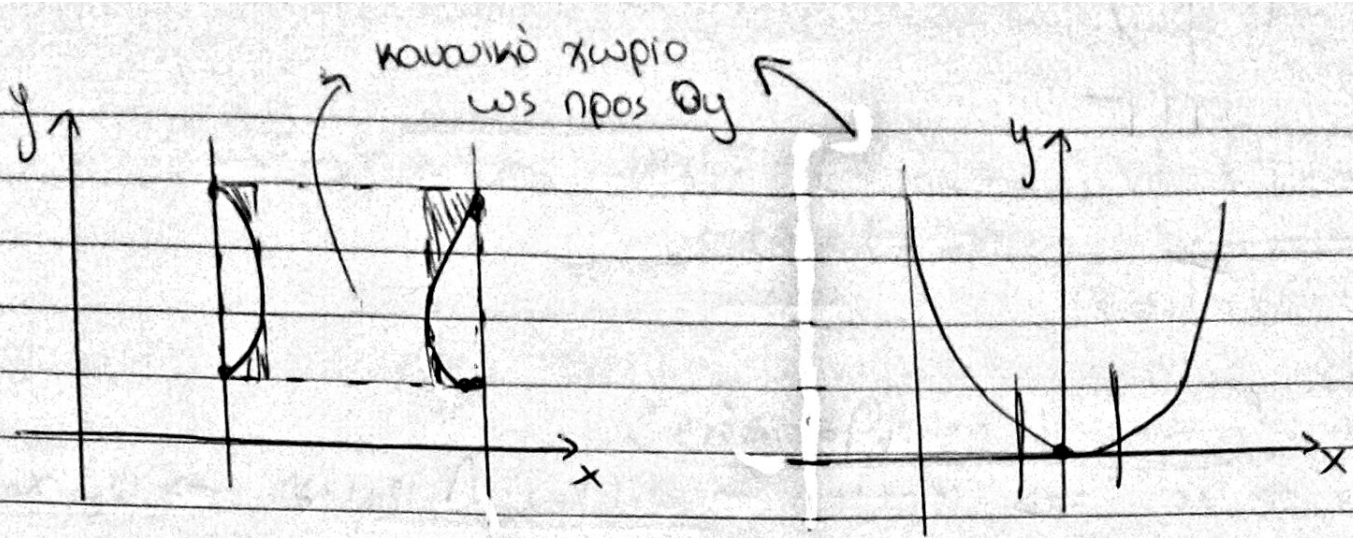 κανονικό χωρίο
ως προς Oy
y
x
y
x